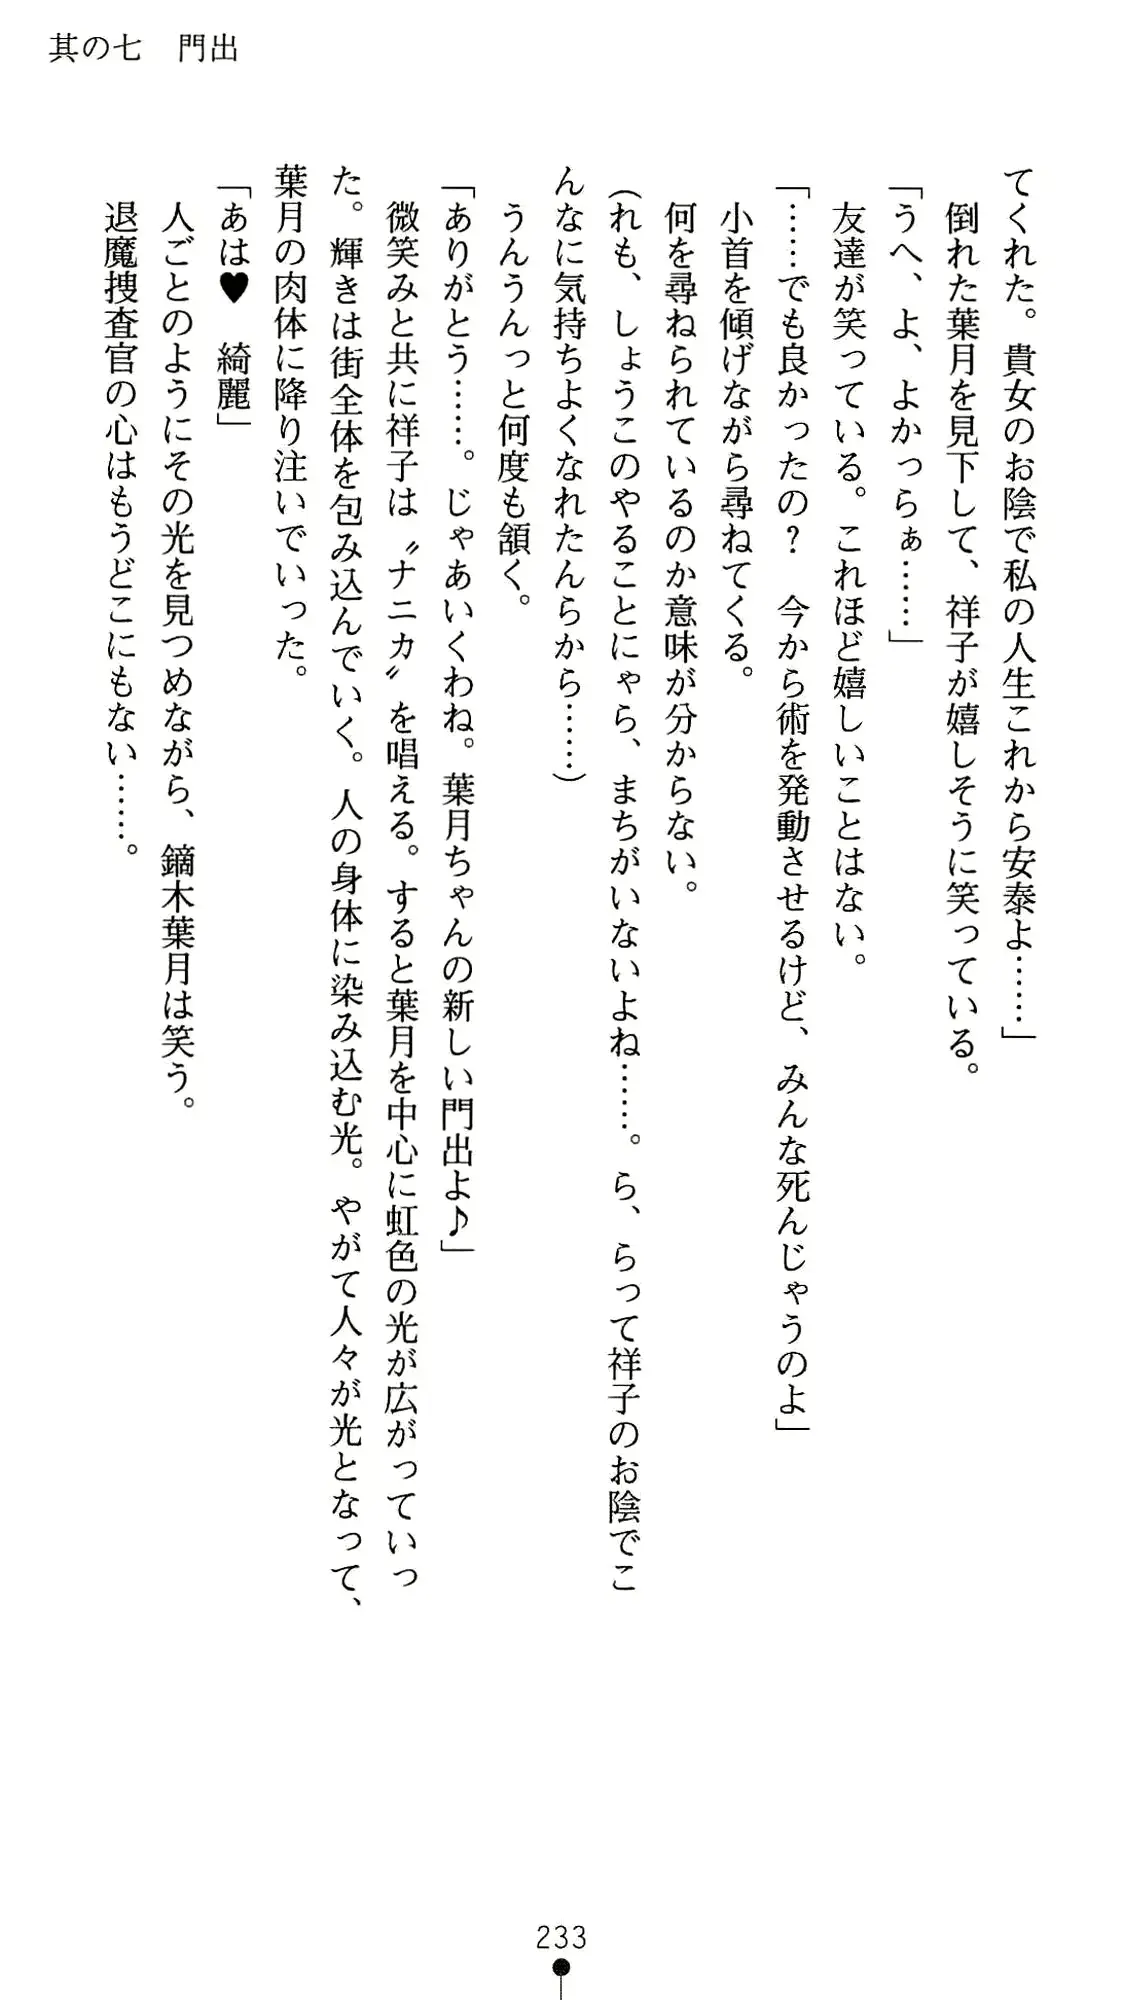 其の七　門出
てくれた。貴女のお陰で私の人生これから安泰よ……」
倒れた葉月を見下して、祥子が嬉しそうに笑っている。
「うへ、よ、よかっらぁ……」
友達が笑っている。これほど嬉しいことはない。
「……でも良かったの？　今から術を発動させるけど、みんな死んじゃうのよ」
小首を傾げながら尋ねてくる。
何を尋ねられているのか意味が分からない。
（れも、しょうこのやることにゃら、まちがいないよね……。ら、らって祥子のお陰でこ
んなに気持ちよくなれたんらから……）
うんうんっと何度も頷く。
「ありがとう……。じゃあいくわね。葉月ちゃんの新しい門出よ♪」
微笑みと共に祥子は〝ナニカ〟を唱える。すると葉月を中心に虹色の光が広がっていっ
た。輝きは街全体を包み込んでいく。人の身体に染み込む光。やがて人々が光となって、
葉月の肉体に降り注いでいった。
「あは♥　綺麗」
人ごとのようにその光を見つめながら、鏑木葉月は笑う。
退魔捜査官の心はもうどこにもない……。
233